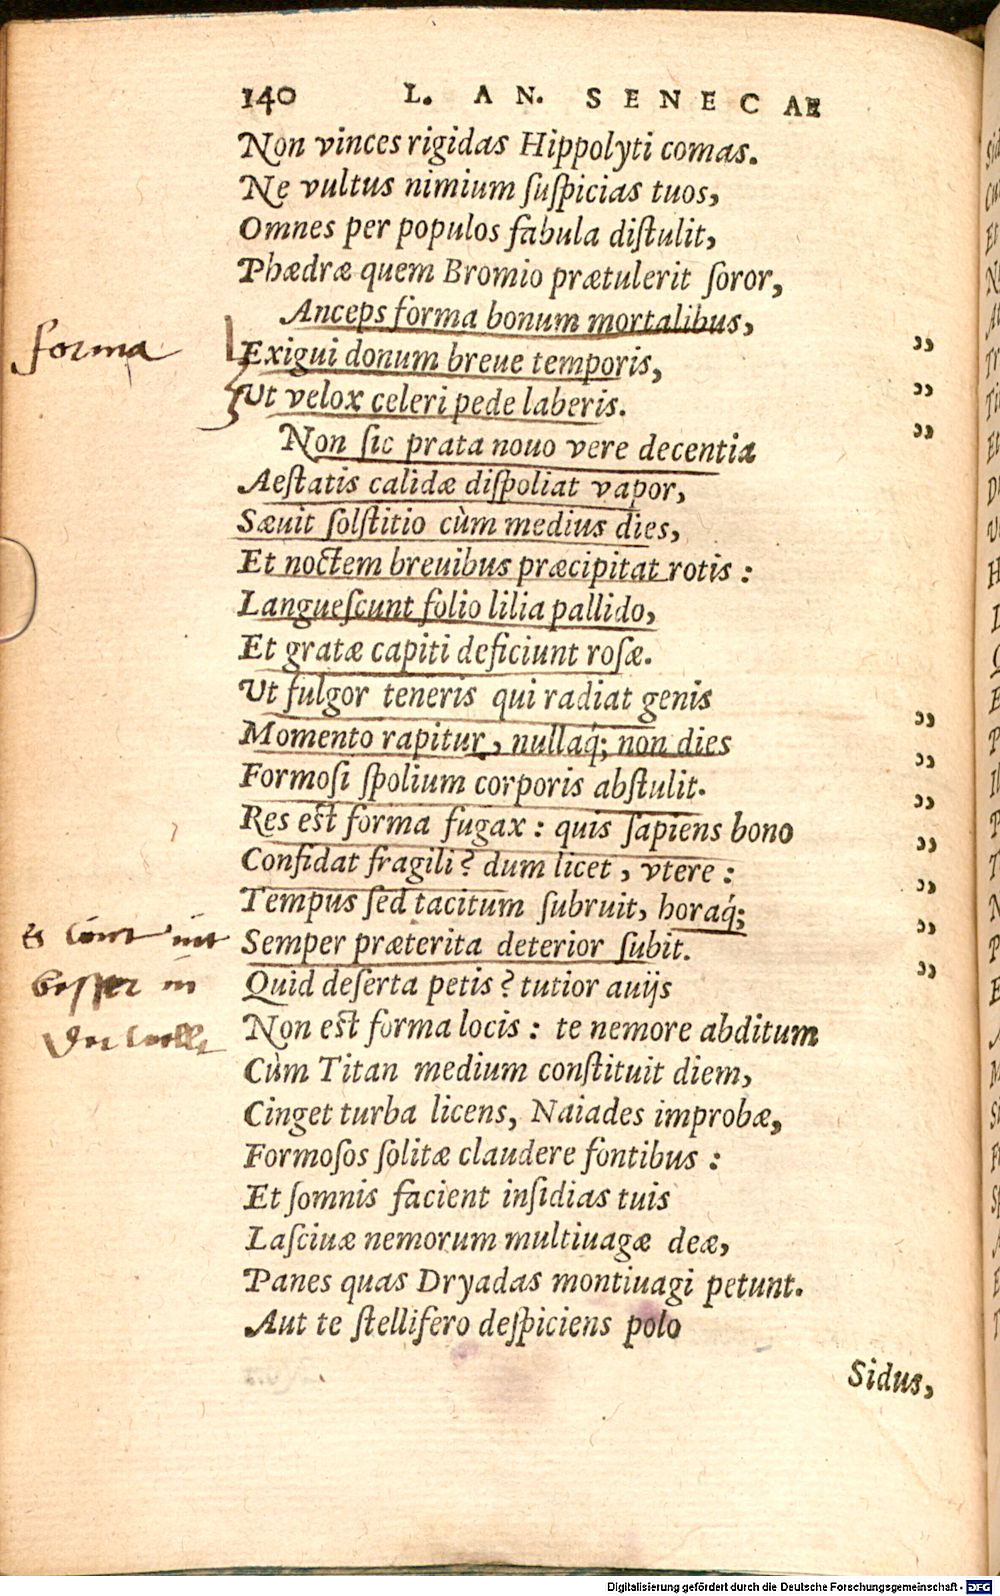 140 L. AN. SENECAE
Non vinces rigidas Hippolyti comas.
Ne vultus nimium ſuſpicias tuos,
Omnes per populos fabula diſtulit,
Phædræ quem Bromio prætulerit ſoror,
Anceps forma bonum mortalibus,
forma
Exigui donum breue temporis, ”
Ut velox celeri pede laberis. ”
Non ſic prata nouo vere decentia ”
Aeſtatis calidæ diſpoliat vapor,
Sæuit ſolſtitio cùm medius dies,
Et noctem breuibus præcipitat rotis :
Langueſcunt folio lilia pallido,
Et gratæ capiti deficiunt roſæ.
Ut fulgor teneris qui radiat genis
Momento rapitur, nullaq́; non dies ”
Formoſi ſpolium corporis abſtulit. ”
Res eſt forma fugax : quis ſapiens bono ”
Confidat fragili? dum licet, vtere : ”
Tempus ſed tacitum ſubruit, horaq́; ”
Semper præterita deterior ſubit. ”
Quid deſerta petis? tutior auijs ”
beſſer in
Non eſt forma locis : te nemore abditum
Cùm Titan medium conſtituit diem,
Cinget turba licens, Naiades improbæ,
Formoſos ſolitæ claudere fontibus :
Et ſomnis facient inſidias tuis
Laſciuæ nemorum multiuagæ deæ,
Panes quas Dryadas montiuagi petunt.
Aut te ſtellifero deſpiciens polo
Sidus,
Digitalisierung gefördert durch die Deutsche Forschungsgemeinschaft - DFG